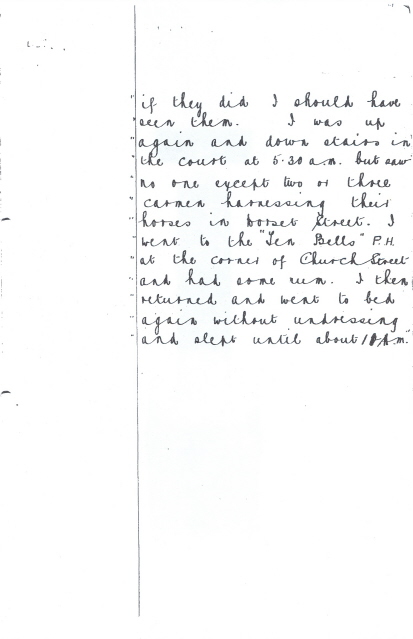 "if they did I should have
"seen them. I was up
"again and down stairs in
"the court at 5.30 a.m. but saw
"no one except two or three
"carmen harnessing their
"horses in Dorset Street. I
"went to the "Ten Bells" P.H.
"at the corner of Church Street
"and had some rum. I then
"returned and went to bed
"again without undressing
"and slept until about 10 A.m."